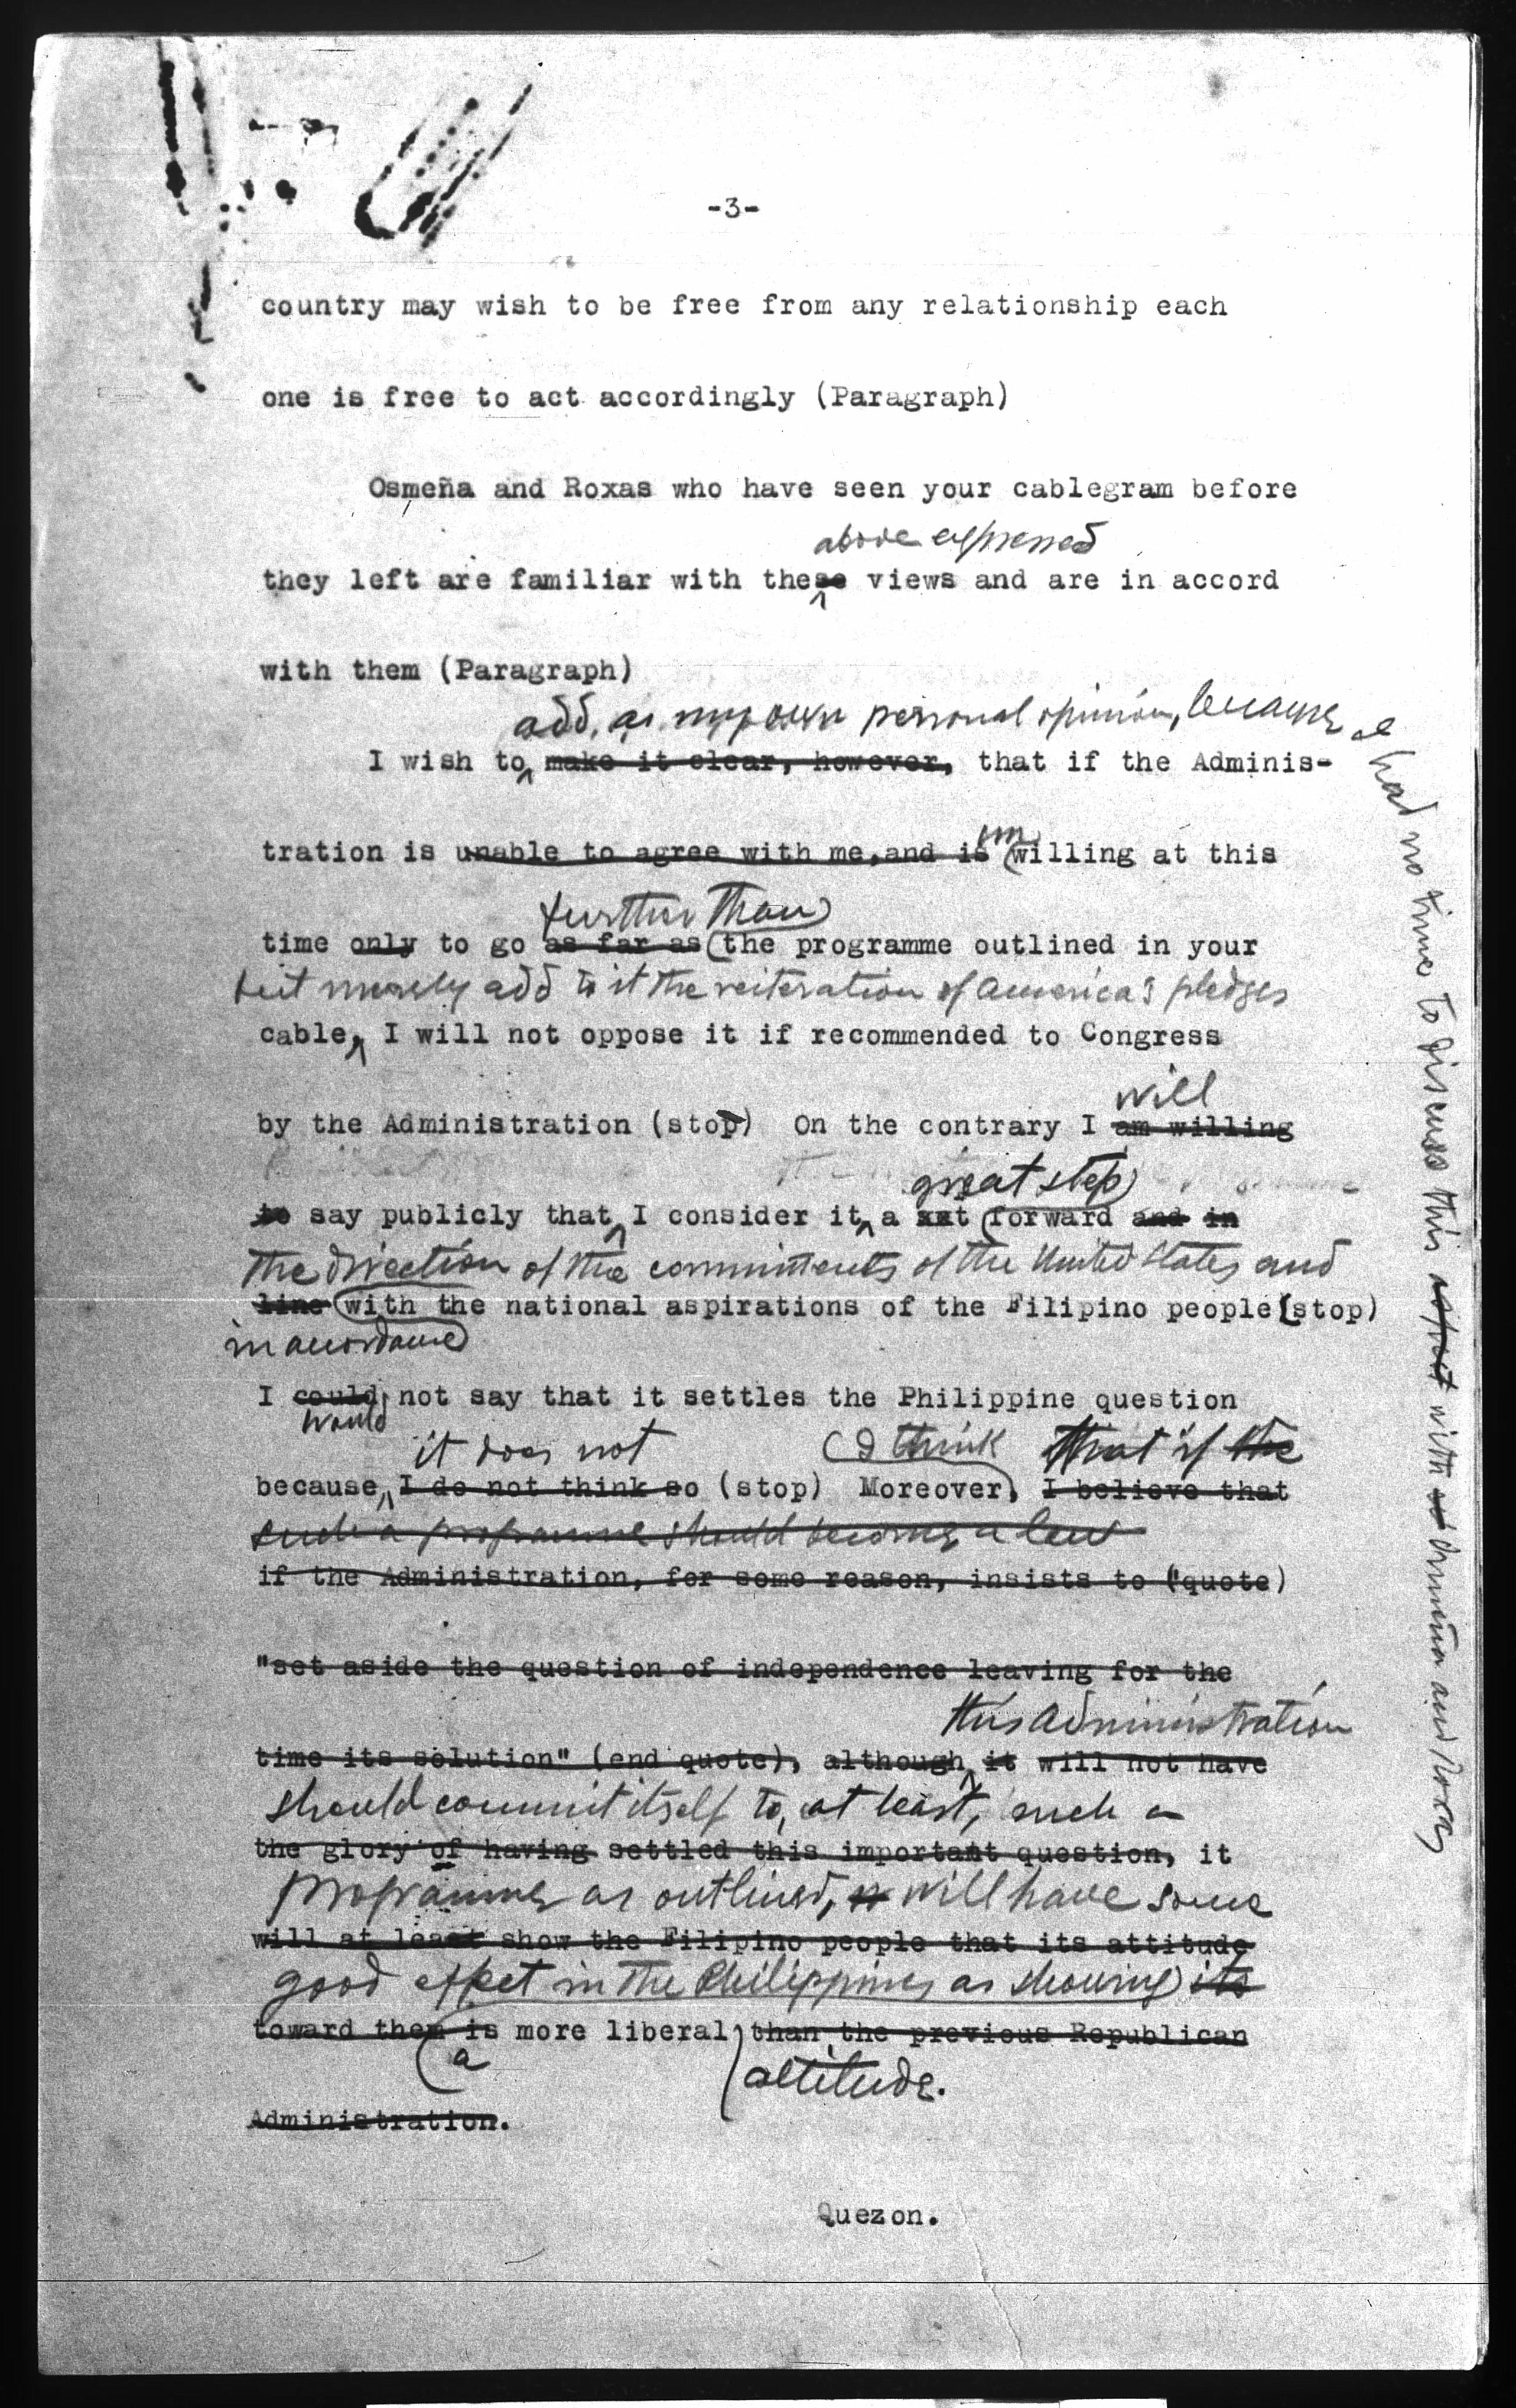 -3-
country may wish to be free from any relationship each
one is free to act accordingly (Paragraph)
Osmeña and Roxas who have seen your cablegram before
above expressed
they left are familiar with these views and are in accord
with them (Paragraph)
add, as my own personal opinion, because I
had no time to discuss this aspect with Osmeña and Roxas
I wish to make it clear, however, that if the Adminis-
tration is unable to agree with me, and is willing at this
un
further than
time only to go as far as the programme outlined in your
but merely add to it the reiteration of America's pledges
cable, I will not oppose it if recommended to Congress
will
by the Administration (stop) On the contrary I am willing
great step
to say publicly that I consider it a forward and in
the direction of the commitments of the United States and
line with the national aspirations of the Filipino people (stop)
in accordance
I could not say that it settles the Philippine question
would
it does not (I think that if the
because I do not think so (stop) Moreover, I believe that
such a programme should become a law
if the Administration, for some reason, insists to ("quote)
"set aside the question of independence leaving for the
this administration
time its solution" (end quote), although it will not have
should commit itself to, at least, such a
the glory of having settled this important question, it
programme as outlined, it will have some
will at least show the Filipino people that its attitude
good effect in the Philippines as showing its
toward them is more liberal than the previous Republican
a attitude.
Administration.
Quezon.